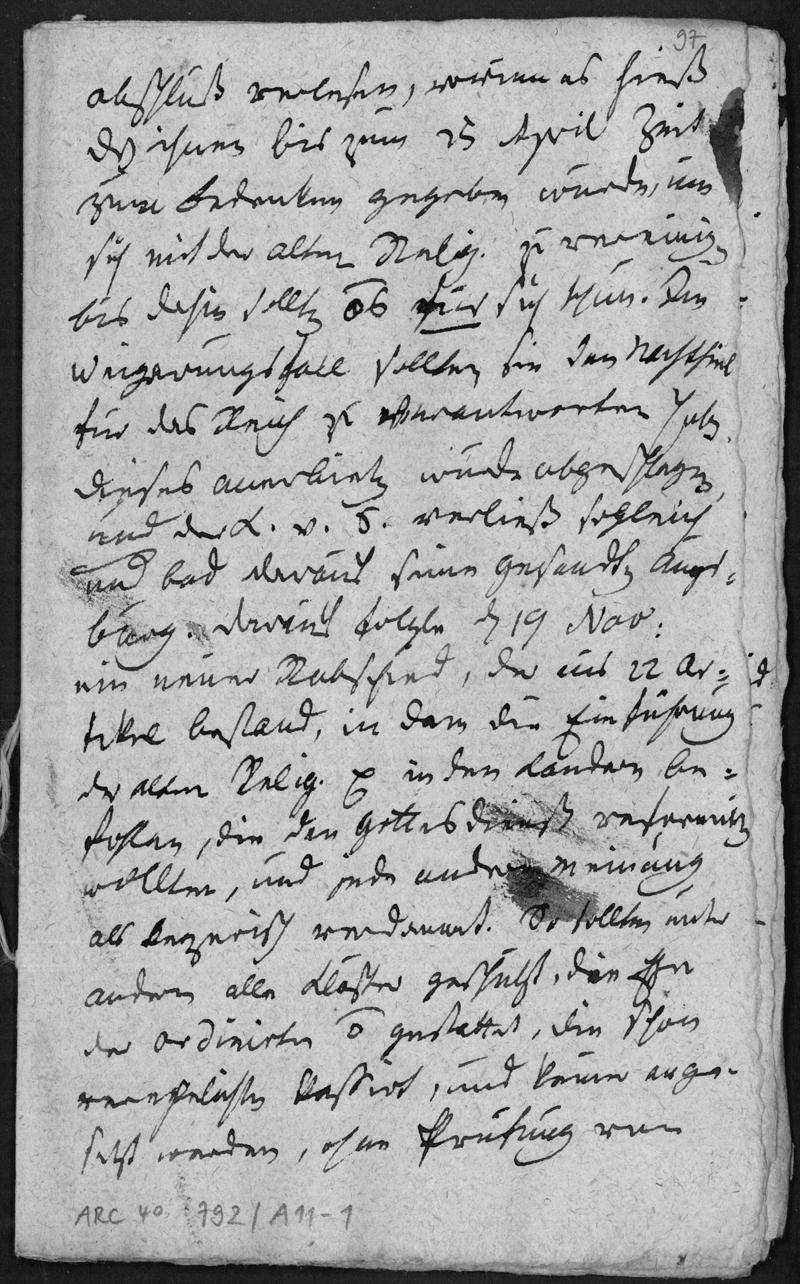 97
abschluß verlesen, worinn es hieß
dß ihnen bis zum 15 April Zeit
zum bedenken gegeben würde, um
sich mit der alten Relig. zu vereinig
bis dahin sollte für sich thun. Im
weigerungsfall sollten sie den Nachtheil
für das Reich zu verantworten hab.
dieses anerbieten wurde abgeschlagen
und der K. v. S. verließ sogleich
und bald darauf seine gesandte Augs=
burg. darauf folgte d 19 Nov:
ein neuer Rabschied, der aus 22 Ar=
tikel bestand, in dem die Einführung
der alten Relig. in den Ländern be=
fohlen, die den gottesdienst reformirte
wollten, und jede andere meinung
als ketzerisch verdammt. So sollten unter
andern alle Klöster geschützt, die Ehe
der ordinirten gestattet, die schon
verehelichte kassirt, und keiner ange-
setzt werden, ohne Prüfung von
ARC 4° 792 / A 11-1